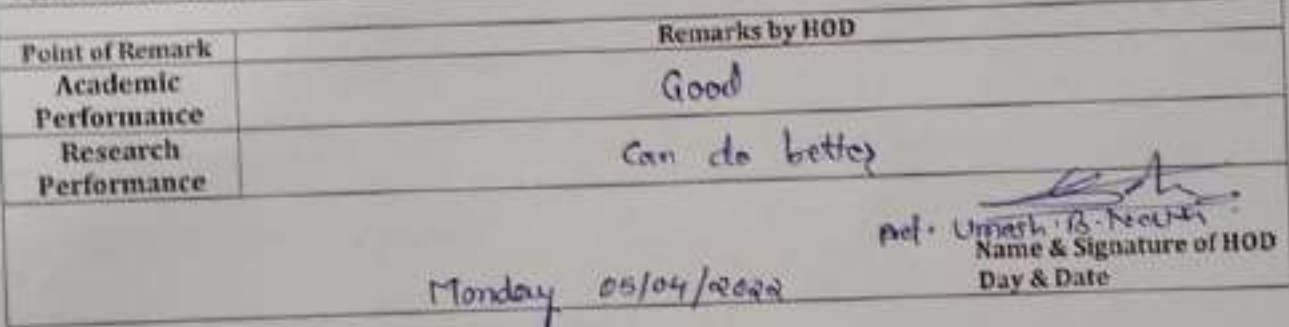 Point of Remark Remarks by HOD
Academic Performance Good
Research Performance Can do better
Prof. Umesh. B.
Name & Signature of HOD
Monday 05/04/2022 Day & Date